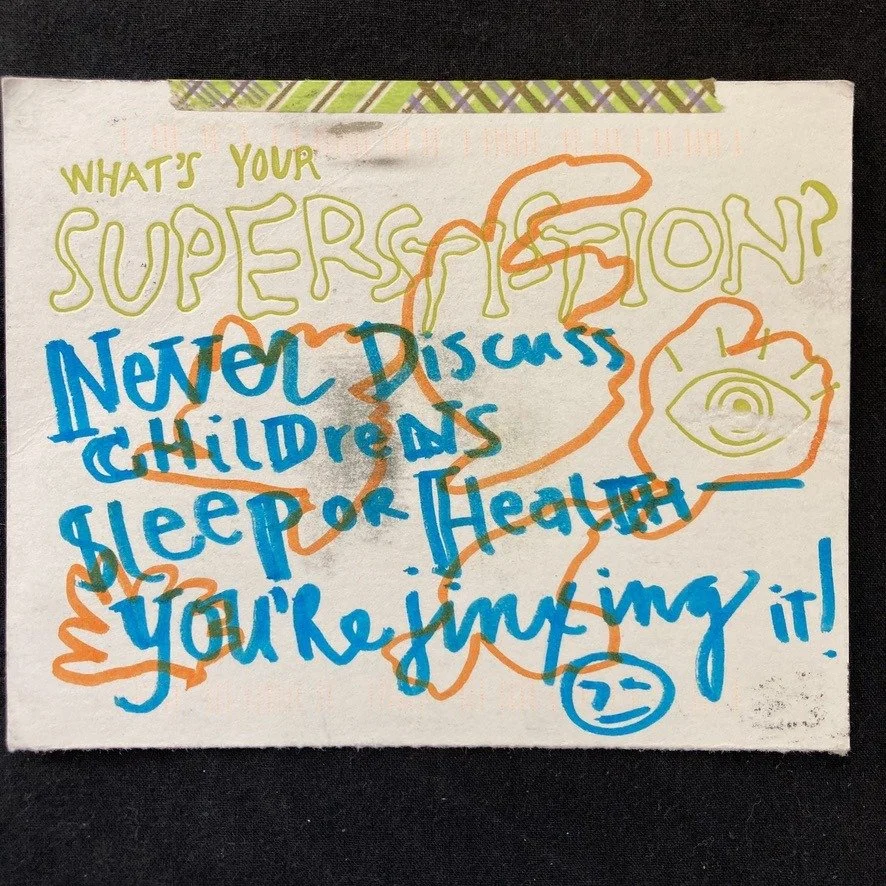 WHAT'S YOUR
SUPERSTITION?
Never Discuss
CHilDreNS
Sleep or Health —
You're jinxing it!